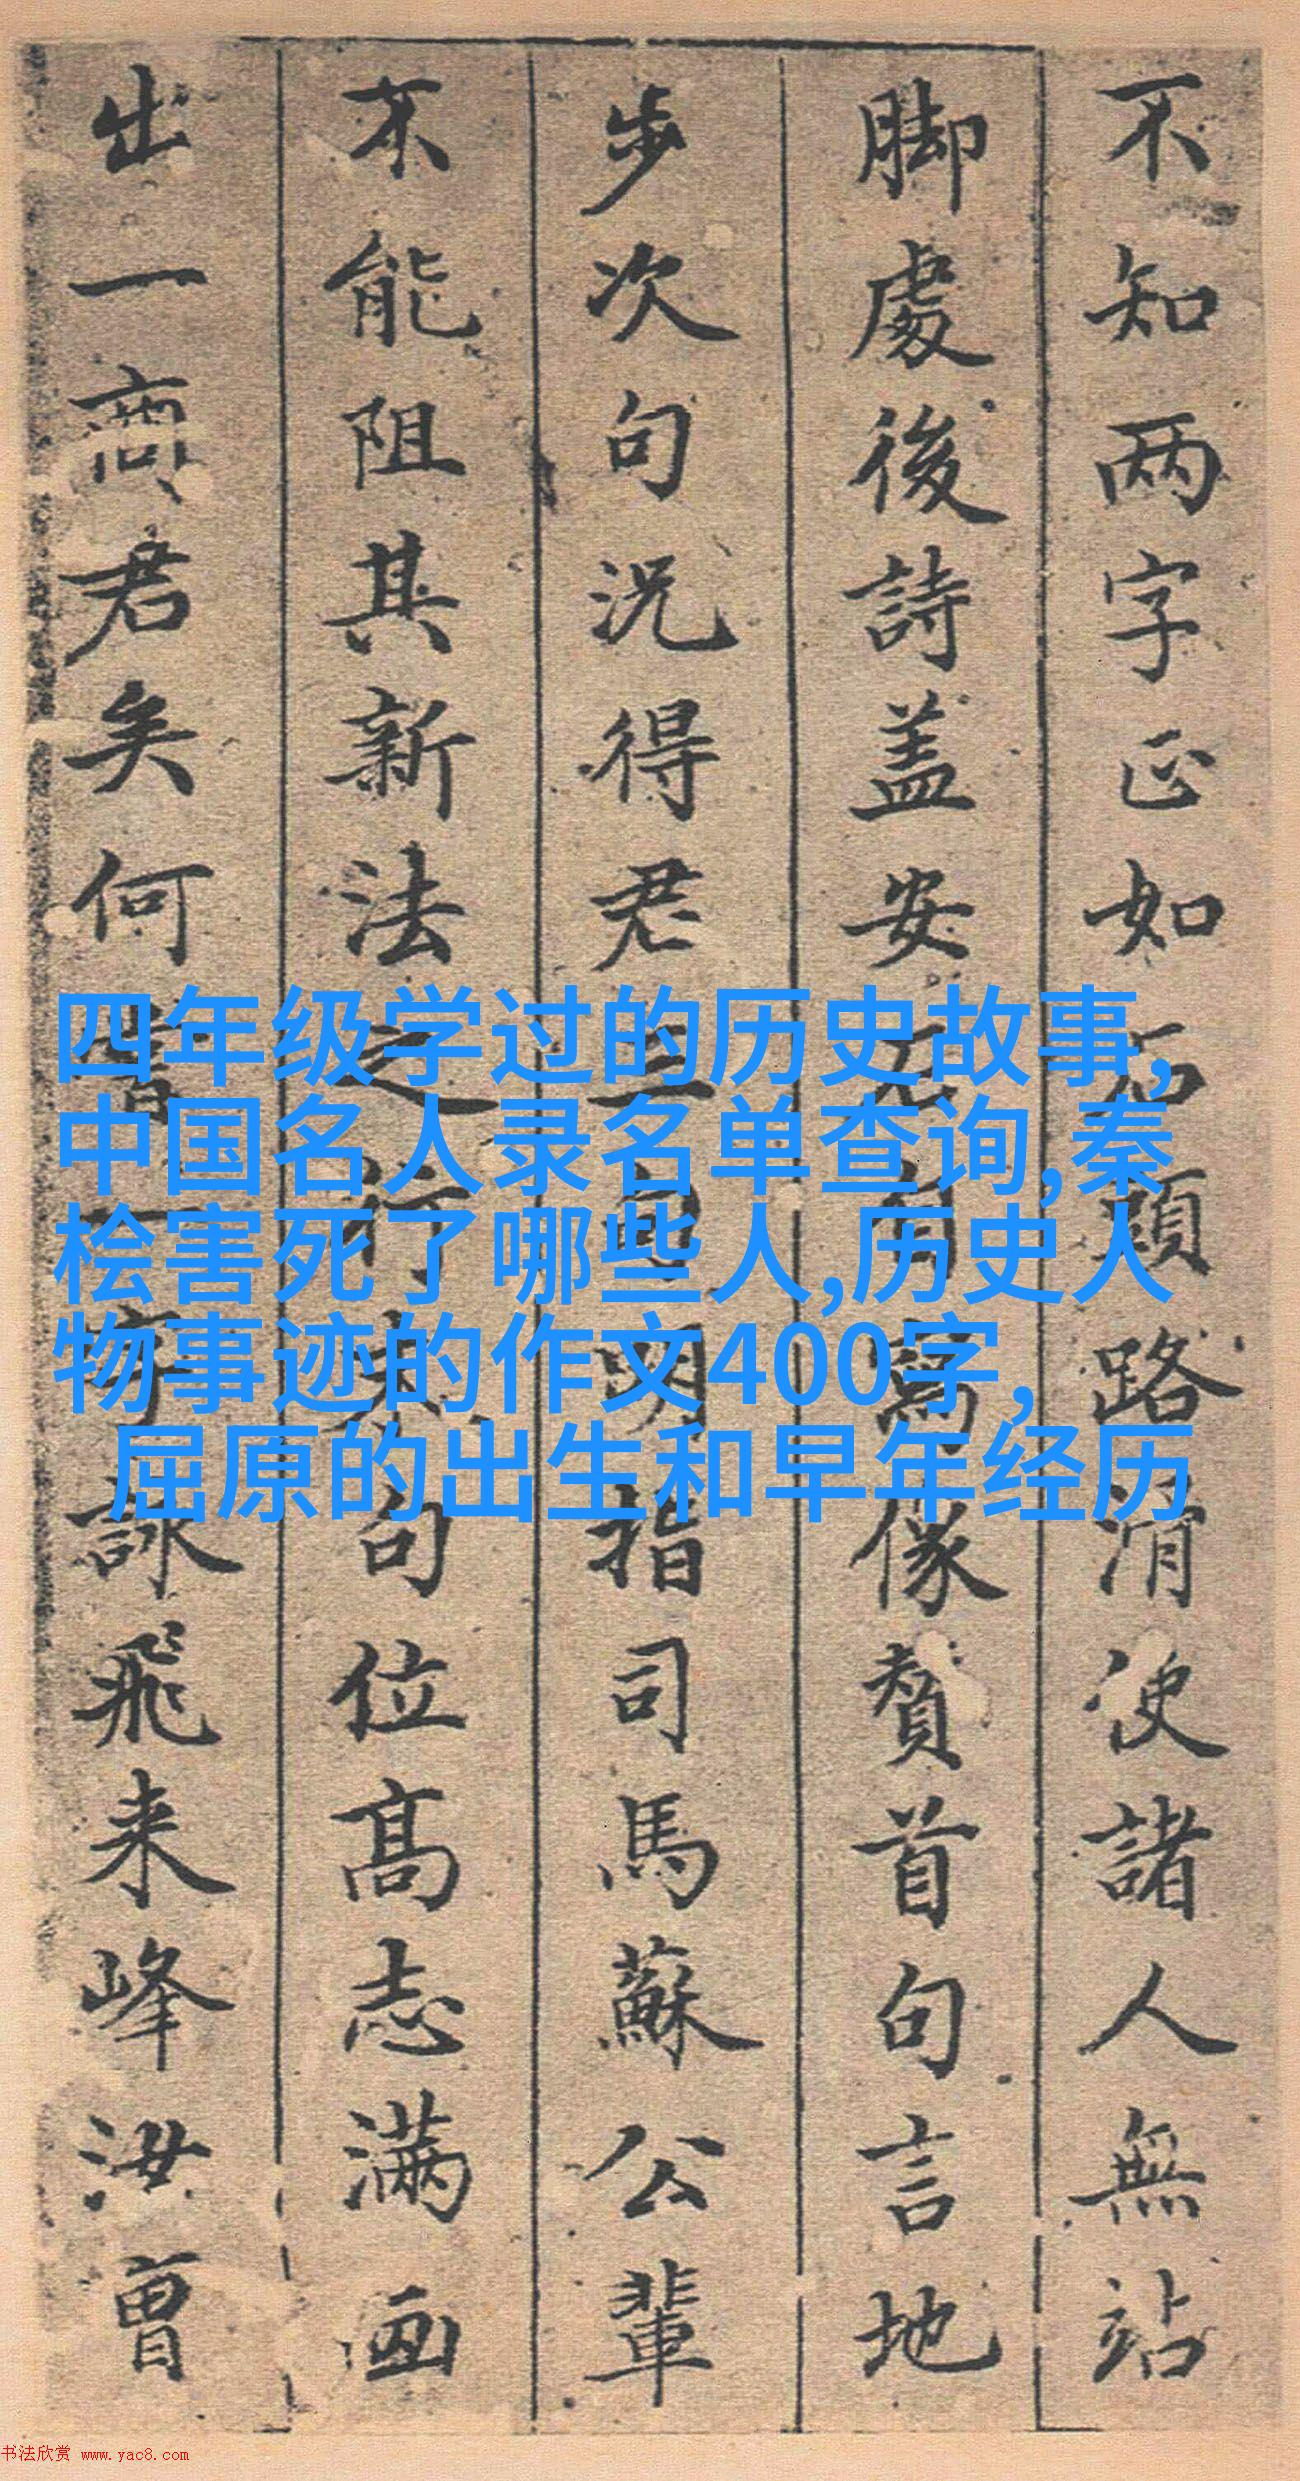 不知两字正如石頭路滑使諸人無站
脚處後詩盖安自寫像賛首句言地
步次句况得君句明指司馬蘇公輩
不能阻其新法之行句位高志满画
出一商君矣何詠飛来峰汝曾
四年级学过的历史故事,
中国名人录名单查询,秦
桧害死了哪些人,历史人
物事迹的作文400字,
屈原的出生和早年经历
书法欣赏 www.yac8.com